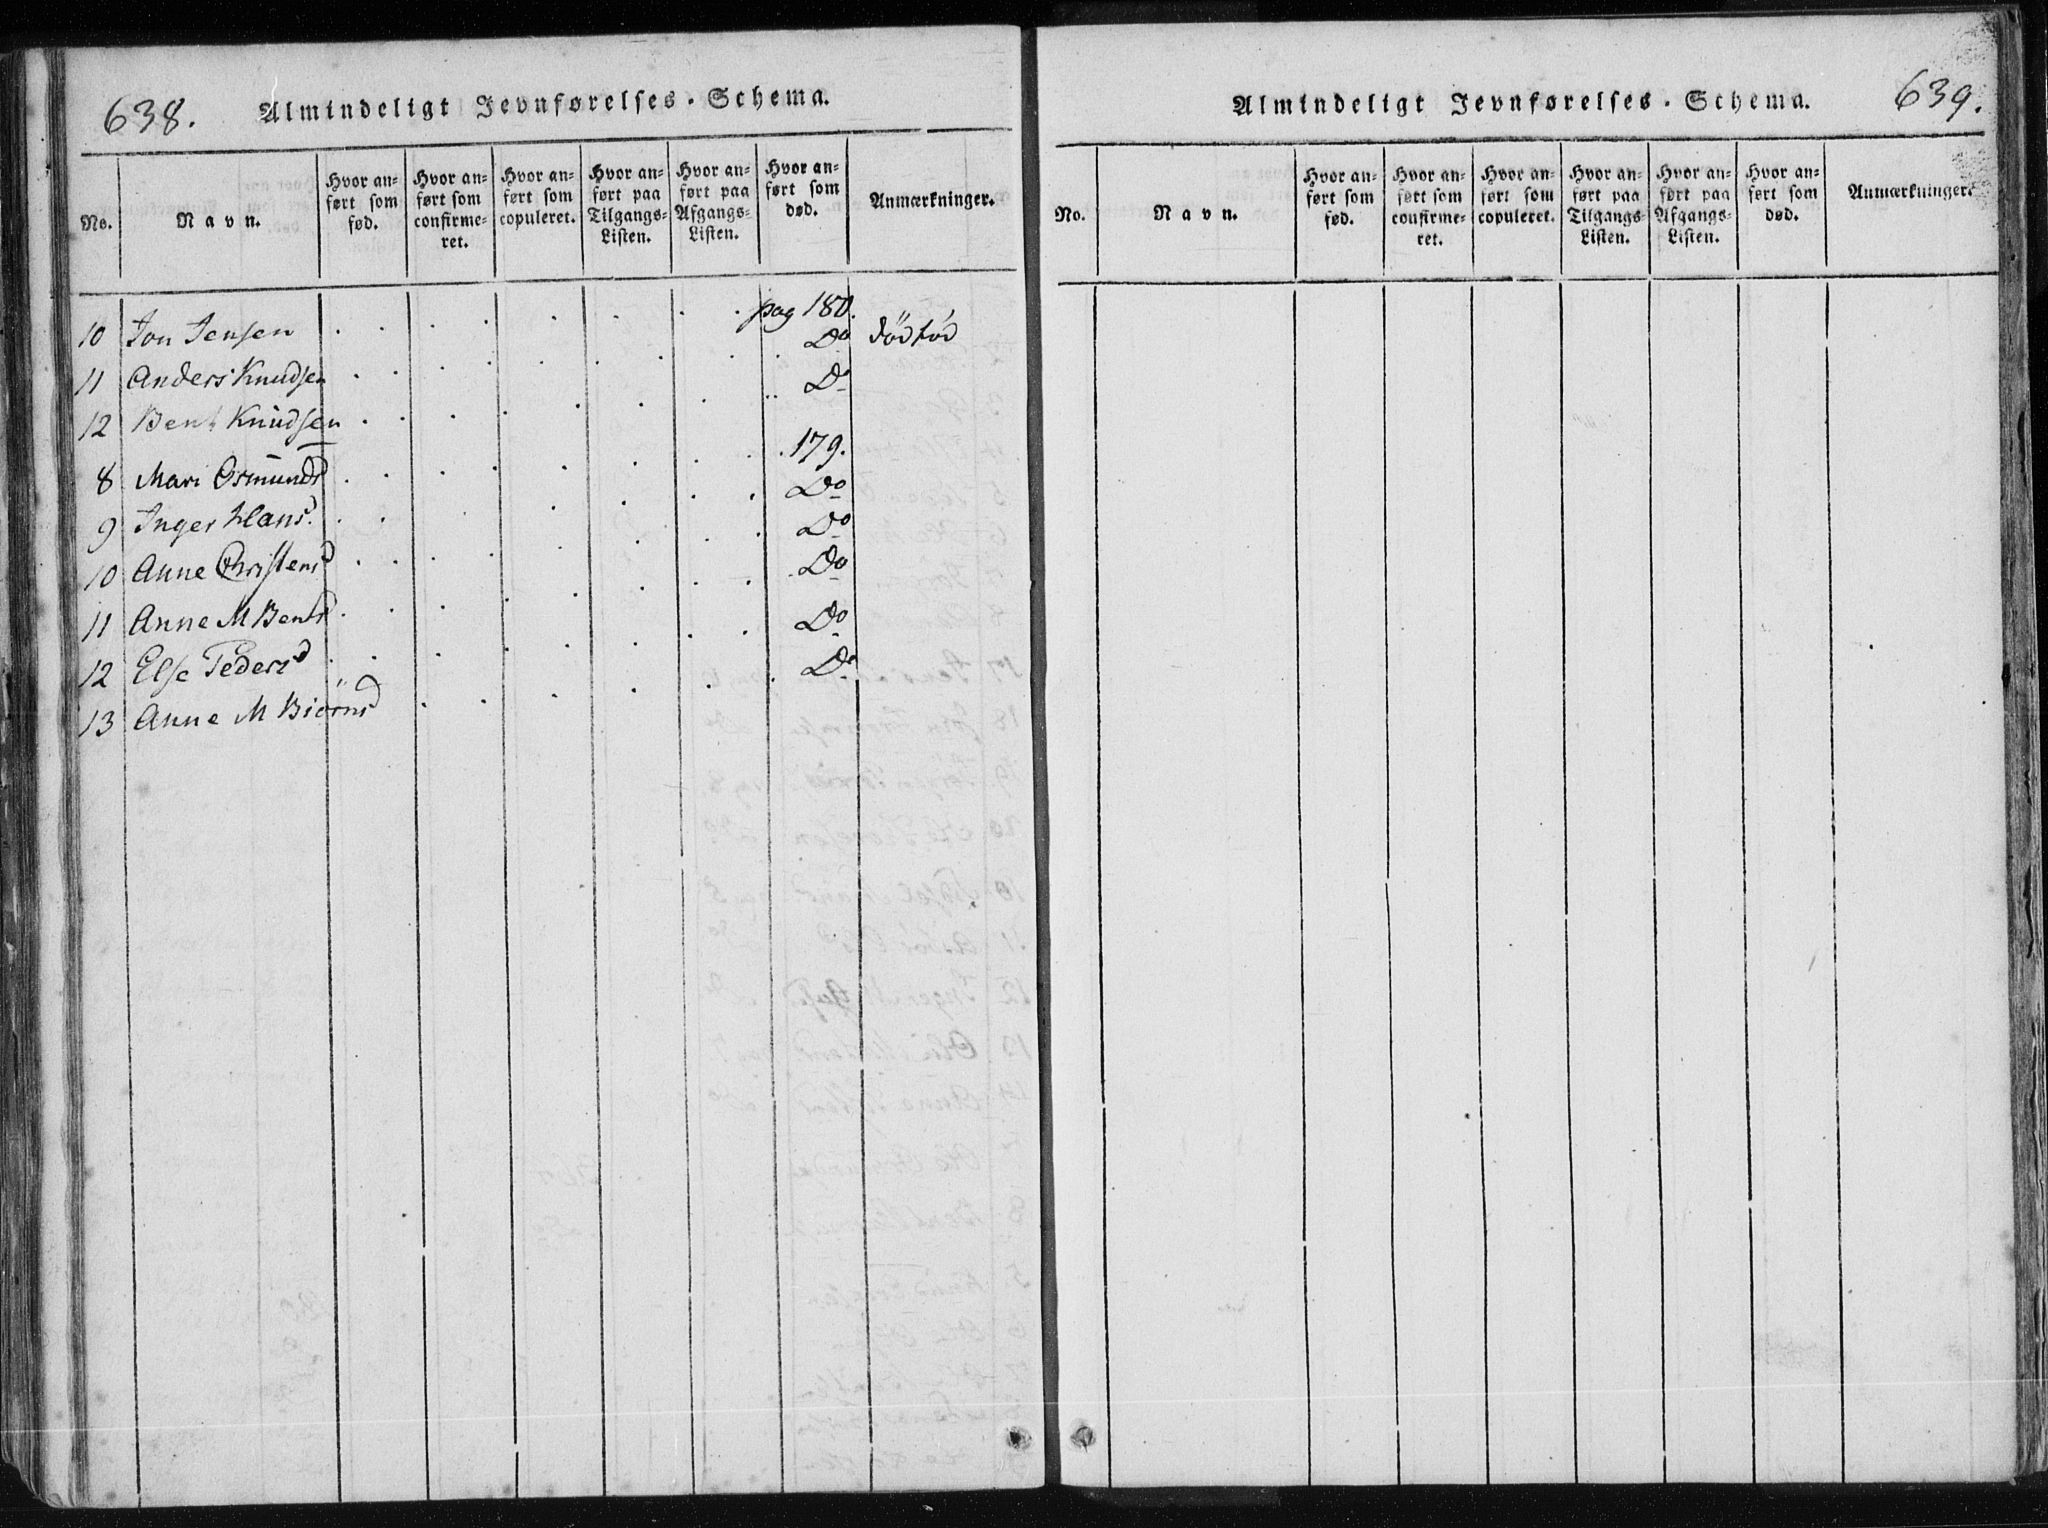 638.
Almindeligt Jevnførelses-Schema.
No.
Navn.
Hvor an-
ført som
fød.
Hvor an-
ført som
confirme-
ret.
Hvor an-
ført som
copuleret.
Hvor an-
ført paa
Tilgangs-
Listen.
Hvor an-
ført paa
Afgangs-
Listen.
Hvor an-
ført som
død.
Anmærkninger.
10 Jon Jensen . . . . . . . . pag 180.
11 Anders Knudsen . . . . . . . . Do dödfód
12 Bent Knudsen . . . . . . . . Do
8 Mari Osmundsd . . . . . . . . 179.
9 Inger Hansd. . . . . . . . Do
10 Anne Christensd . . . . . . . . Do
11 Anne M Bentsd . . . . . . . . Do
12 Else Pedersd . . . . . . . . Do
13 Anne M Biörnsd . . . . . . . Do
Almindeligt Jevnførelses-Schema.
639.
No.
Navn.
Hvor an-
ført som
fød.
Hvor an-
ført som
confirme-
ret.
Hvor an-
ført som
copuleret.
Hvor an-
ført paa
Tilgangs-
Listen.
Hvor an-
ført paa
Afgangs-
Listen.
Hvor an-
ført som
død.
Anmærkninger.